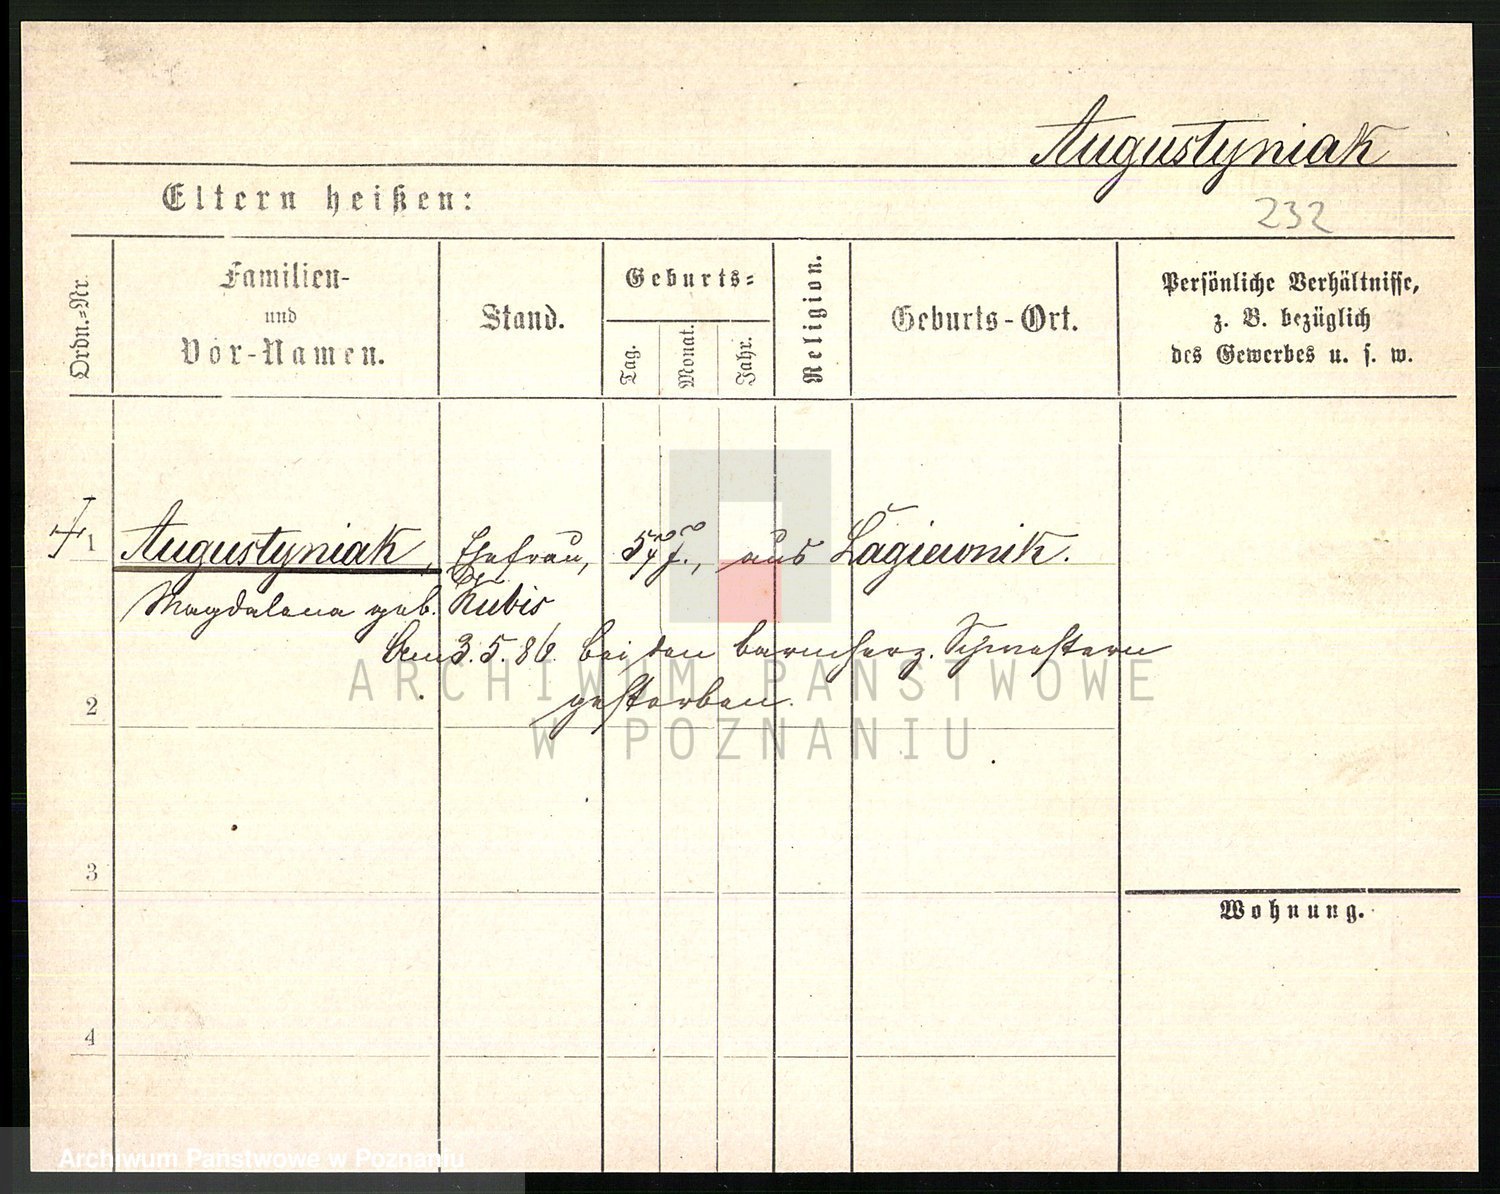 Augustyniak
Eltern heißen:
232
Ordn.=Nr.
Familien-
und
Vor-Namen.
Stand.
Geburts=
Tag.
Monat.
Jahr.
Religion.
Geburts-Ort.
Persönliche Verhältnisse,
z. B. bezüglich
des Gewerbes u. s. w.
1 Augustyniak, Ehefrau, 54 J., aus Łagiewnik.
Magdalena geb. Kubis
Am 3.5.86. bei den barmherz. Schwestern
gestorben.
2
3
4
Wohnung.
ARCHIWUM PAŃSTWOWE
W POZNANIU
Archiwum Państwowe w Poznaniu